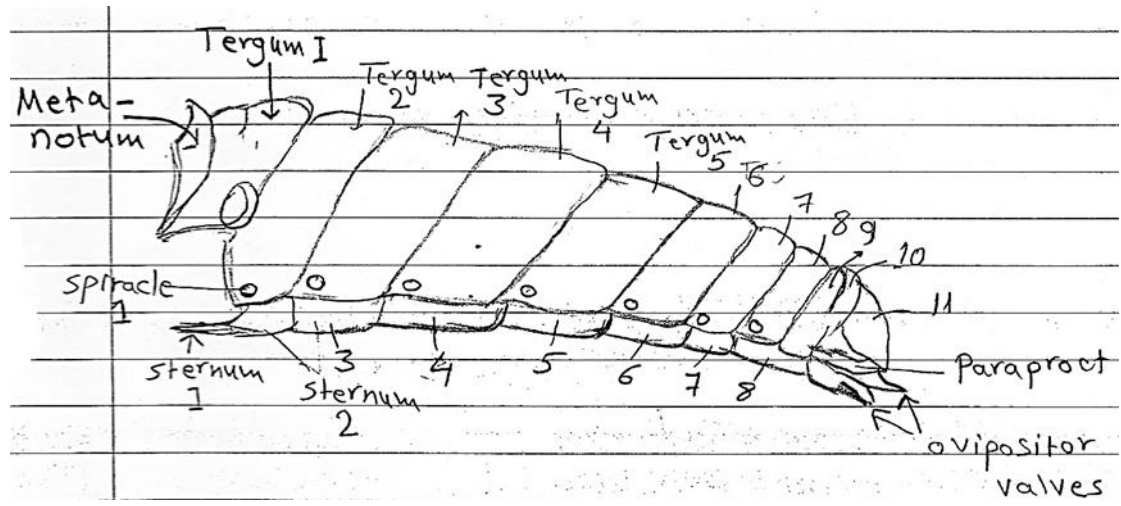 Tergum I
Tergum
2
Tergum
3
Tergum
4
Tergum
5
T6
7
8
9
10
11
Meta-
notum
spiracle
1
sternum
1
sternum
2
3
4
5
6
7
8
Paraproct
ovipositor
valves